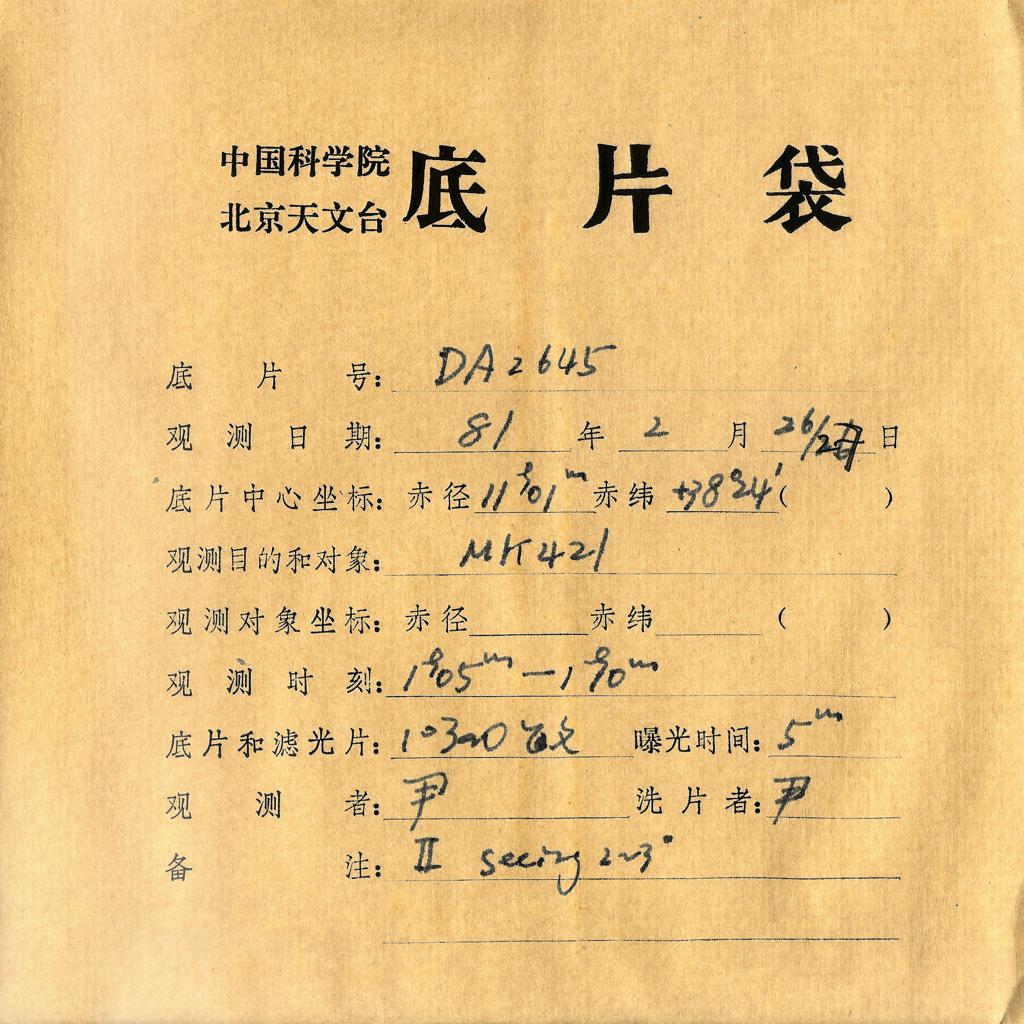 中国科学院
北京天文台
底片袋
底片号: DA2645
观测日期: 81 年 2 月 26/27 日
底片中心坐标: 赤径 11h01m 赤纬 +38°24′ ( )
观测目的和对象: MK421
观测对象坐标: 赤径 赤纬 ( )
观测时刻: 1h05m — 1h10m
底片和滤光片: 103aO 曝光时间: 5m
观测者: 尹 洗片者: 尹
备注: II seeing 2~3"